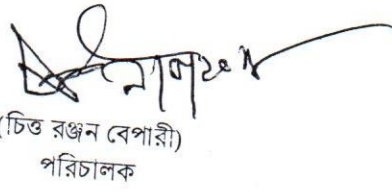 (চিত্ত রঞ্জন বেপারী)
পরিচালক